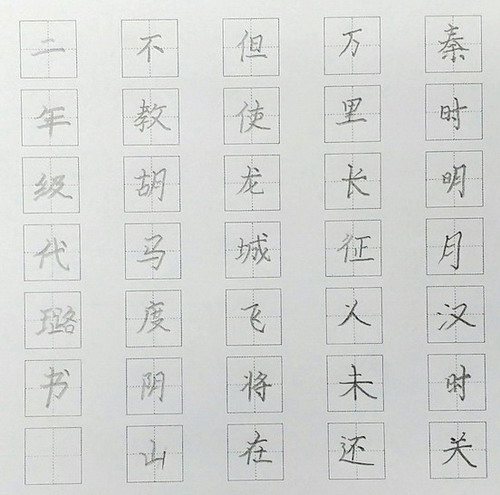 秦时明月汉时关
万里长征人未还
但使龙城飞将在
不教胡马度阴山
二年级代璐书